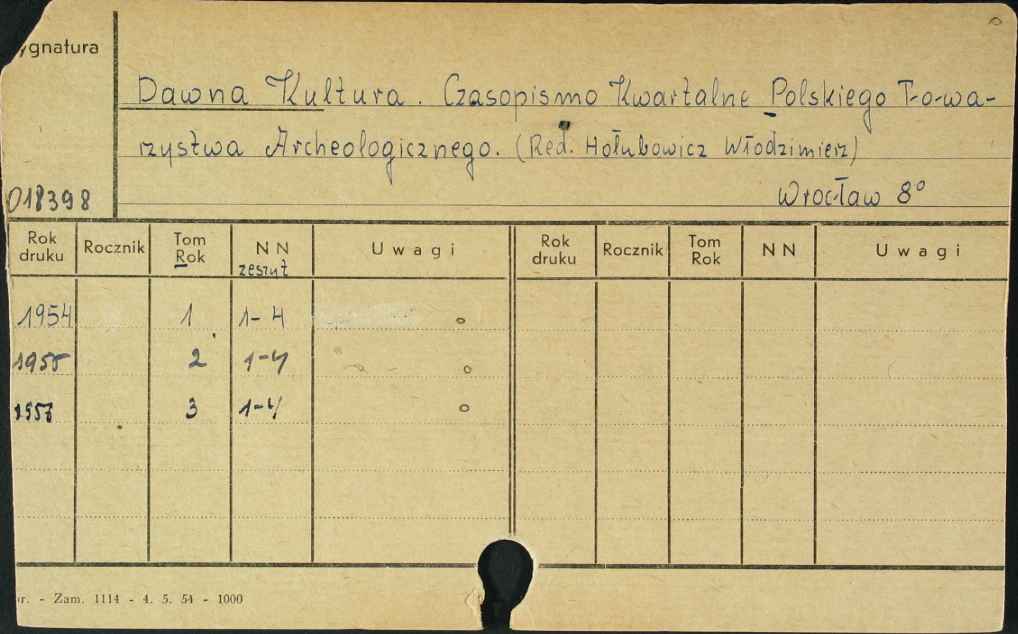 ygnatura
Dawna Kultura. Czasopismo Kwartalne Polskiego Towa-
rzystwa Archeologicznego. (Red. Hołubowicz Włodzimierz)
018398 Wrocław 8°
Rok druku Rocznik Tom Rok NN zeszyt Uwagi Rok druku Rocznik Tom Rok NN Uwagi
1954 1 1-4
1955 2 1-4
3 1-4
r. - Zam. 1114 - 4. 5. 54 - 1000